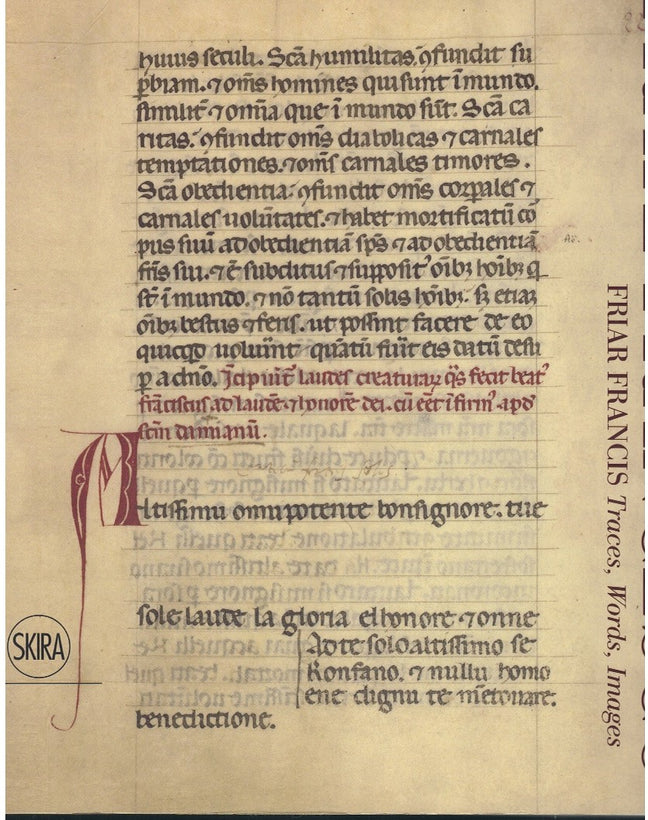 huius seculi. Scā humilitas ꝯfundit su
ꝑbiam. ⁊ om̄s homines qui sunt ī mundo.
similit̄ ⁊ om̄ia que ī mundo sūt. Scā ca
ritas. ꝯfundit om̄s diabolicas ⁊ carnales
temptationes. ⁊ om̄s carnales timores.
Scā obedientia. ꝯfundit om̄s corꝑales ⁊
carnales uolūtates. ⁊ habet mortificatū cō
pus suū ad obedientiā sp̄s ⁊ ad obedientiā
fr̄is sui. ⁊ ē subditus ⁊ supposit᾽ oīb₃ hoīb₃ q̄
st̄ ī mundo. ⁊ nō tantū solis hoīb₃. s₃ etiā₃
oīb₃ bestiis ⁊ feris. ut possint facere de eo
quicq̄d uoluīnt quātū fūit eis datū desu
ꝑ a dn̄o. Īcipiūt laudes creaturaꝝ q̄s fecit beat᾽
frāciscus ad laudē ⁊ honorē dei. cū eēt ī firm᾽ apd̄
sc̄m damianū.
Altissimu omnipotente bonsignore. tue
sole laude la gloria elhonore ⁊ onne
Ad te solo altissimo se
Konfano. ⁊ nullu homo
ene dignu te mētouare.
benedictione.
SKIRA
FRIAR FRANCIS Traces, Words, Images